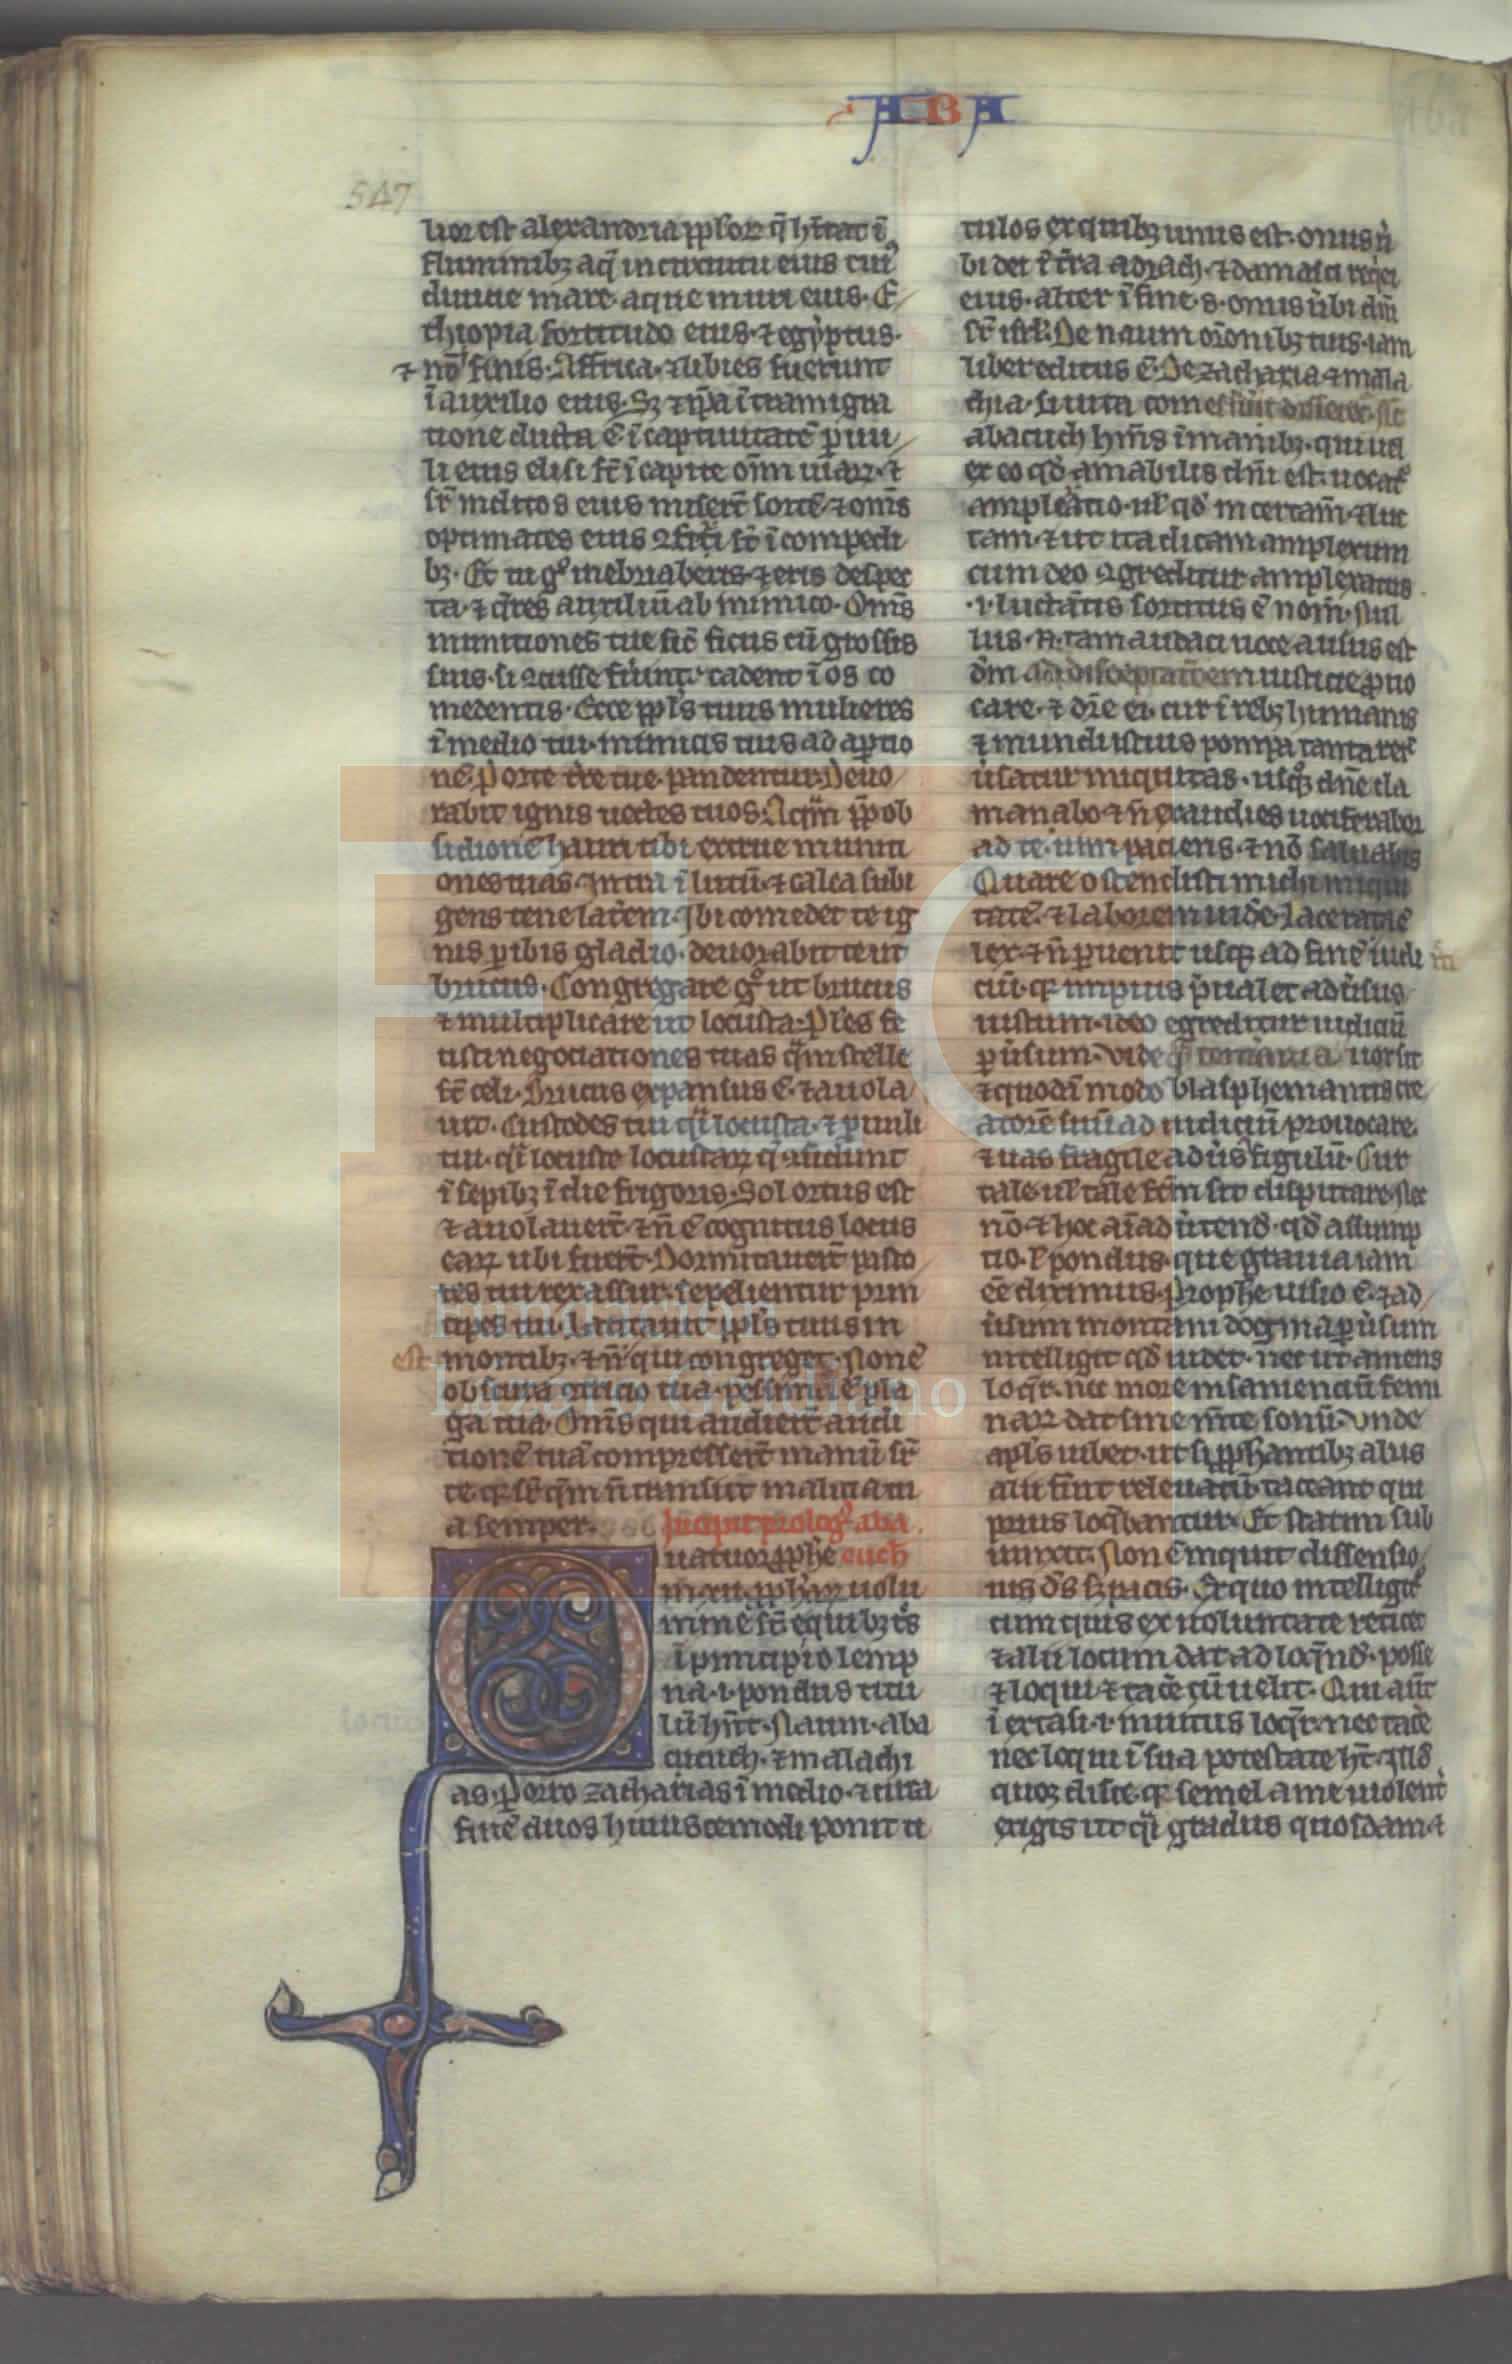 ABA
547
lior est alexandria pplor̄ q̄ h̄itat ī
fluminibꝫ aq̄ in circuitu eius cui᾽
diuitie mare aque muri eius. E
thiopia fortitudo eius. ⁊ egyptus.
⁊ nō finis. Affrica. ⁊ libies fuerunt
ī auxilio eius. Sꝫ ⁊ ip̄a ī transmigra
tione ducta ē ī captiuitatē. paruu
li eius elisi st̄ ī capite om̄ uiarꝝ. ⁊
sr̄ inclitos eius misert̄ sortē ⁊ om̄s
optimates eius ꝯfixi st̄ ī compedi
bꝫ. Et tu gͦ inebriaberis. ⁊ eris despec
ta. ⁊ q̄res auxiliū ab inimico. Om̄s
munitiones tue sic̄ ficus cū grossis
suis. si ꝯcusse fuint᾽ cadent ī os co
medentis. Ecce ppls̄ tuus mulieres
ī medio tui. inimicis tuis ad aptio
nē. Porte tr̄e tue pandentur. Deuo
rabit ignis uectes tuos. Aqm̄ pp̄ ob
sidionē hauri tibi extrue muniti
ones tuas. Intra ī lutū. ⁊ calca subi
gens tene laterem. Ibi comedet te ig
nis. pibis gladio. deuorabit te ut
brucus. Congregare gͦ ut brucus
⁊ multiplicare ut locusta. Ples̄ fe
cisti negociationes tuas q̄m stelle
st̄ celi. Brucus expansus ē. ⁊ auola
uit. Custodes tui q̄i locusta. ⁊ paruuli
tui. q̄i locuste locustarꝝ q̄ ꝯsidunt
ī sepibꝫ ī die frigoris. Sol ortus est
⁊ auolauert̄. ⁊ n̄ ē cognitus locus
earꝝ ubi fuert̄. Dormitauert̄ pasto
res tui rex assur. sepelientur prin
cipes tui. Latitauit ppls̄ tuus in
est montibꝫ. ⁊ n̄ qui congreget. Non ē
obscura ꝯtricio tua. pessima ē pla
ga tua. Om̄s qui audiert̄ audi
tionē tuā compressert̄ manū sr̄
te. qꝛ sr̄ q̄m n̄ transiit malicia tu
a semper. Incipit prologͦ aba
uatuor pphe cuch
in xii. pphar̄ uolu
mine st̄ e quibꝫ tr̄s
ī principio lemp
na. i. pondus titu
lū hn̄t. Naum. aba
cucuch. ⁊ malachi
as. Porro zacharias ī medio. ⁊ circa
finē duos huiuscemodi ponit ti
tulos ex quibꝫ unus est. onus ū
bi dei ī tr̄a adrach. ⁊ damasci req̄ei
eius. alter ī fine. s. onus ūbi dn̄i
sr̄ isrl̄. De naum or̄onibꝫ tuis. iam
liber editus ē. De zacharia ⁊ mala
chia. si uita comes fuit disseret. sic
abacuch hm̄s ī manibꝫ. qui uł
ex eo qd̄ amabilis dn̄i est. uocat᾽
amplexatio. uł qd̄ in certam̄. ⁊ luc
tam. ⁊ ut ita dicam amplexum
cum deo ꝯgreditur amplexatus
.i. luctātis sortitus ē nom̄. nul
lus. n̄. tam audaci uoce ausus est
dm̄ ad disceptat̄onem iusticie prouo
care. ⁊ dic̄e ei. cur ī rebꝫ humanis
⁊ mundi istius pompa tanta rer̄
ūsatur iniquitas. usqꝫ dn̄e cla
manabo ⁊ n̄ exaudies uociferabor
ad te. uim paciens. ⁊ nō saluabis
Quare ostendisti michi iniqui
tatē. ⁊ laborem uid̄e. Lacerata ē
lex. ⁊ n̄ puenit usqꝫ ad finē iudi
ciū. qꝛ impius p̄ualet adūsus
iustum. ideo egreditur iudiciū
pūsum. Vide q̄ temeraria. uox sit
⁊ quodā modo blasphemantis cre
atorē suū ad iudiciū prouocare.
⁊ uas fragile adūs figulū. Cur
tale uł tale fc̄m sit disputare. nec
nō. ⁊ hoc aīaduertend̄. qd̄ assump
tio. ł pondus. que grauia iam
eē diximus. prophe uisio ē. ⁊ ad
ūsum montani dogma pūsum
intelligit qd̄ uidet. nec ut amens
loqr̄. nec more insanienciū femi
narꝝ dat sine mn̄te sonū. Vnde
apls̄ iubet. ut si pphantibꝫ aliis
alii sint reuelatū. taceant qui
prius loq̄bantur. Et statim sub
iunxit. Non ē inquit dissensio
nis ds̄ sꝫ pacis. Ex quo intelligit᾽
cum quis ex uoluntate reticet
⁊ alii locum dat ad loq̄nd̄. posse
⁊ loqui ⁊ tac̄e cū uelit. Qui aūt
ī extasi. i. inuitus loqr̄. nec tac̄e
nec loqui ī sua potestate ht̄. Illd̄
quoqꝫ disce. qꝛ semel a me uiolent᾽
exigis ut q̄i gradus quosdam ⁊
Fundación
Lázaro Galdiano